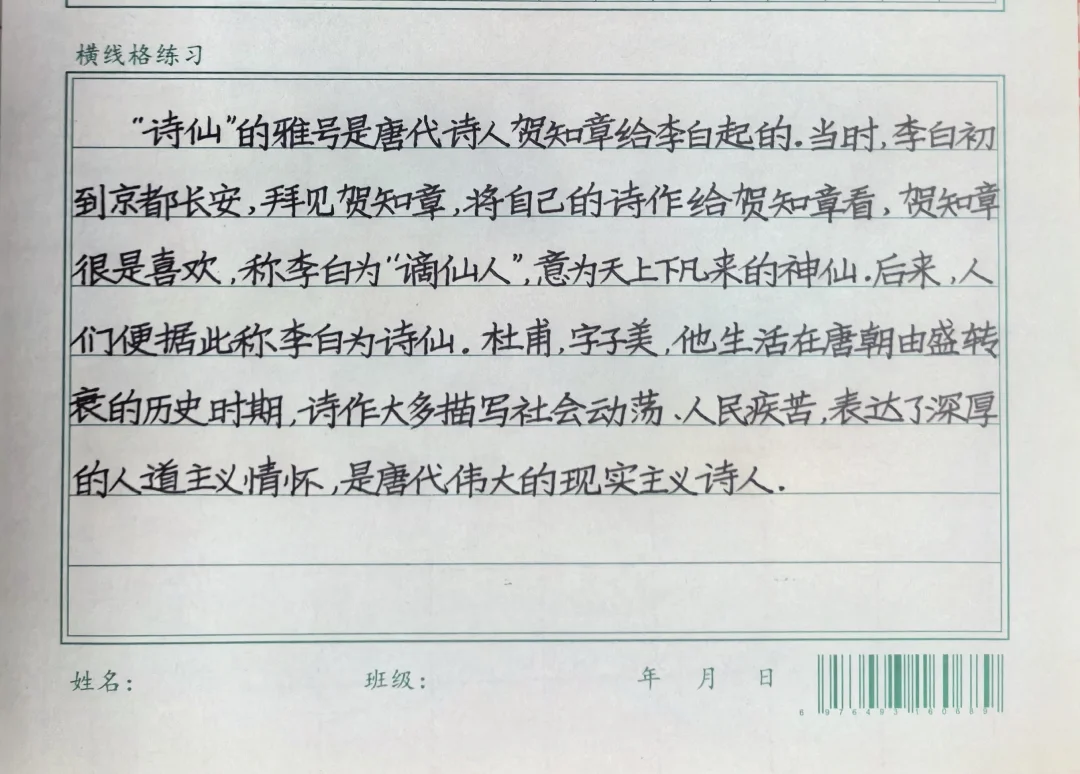 横线格练习
“诗仙”的雅号是唐代诗人贺知章给李白起的.当时,李白初
到京都长安,拜见贺知章,将自己的诗作给贺知章看,贺知章
很是喜欢,称李白为“谪仙人”,意为天上下凡来的神仙.后来,人
们便据此称李白为诗仙.杜甫,字子美,他生活在唐朝由盛转
衰的历史时期,诗作大多描写社会动荡、人民疾苦,表达了深厚
的人道主义情怀,是唐代伟大的现实主义诗人.
姓名: 班级: 年 月 日
6 976493 160689